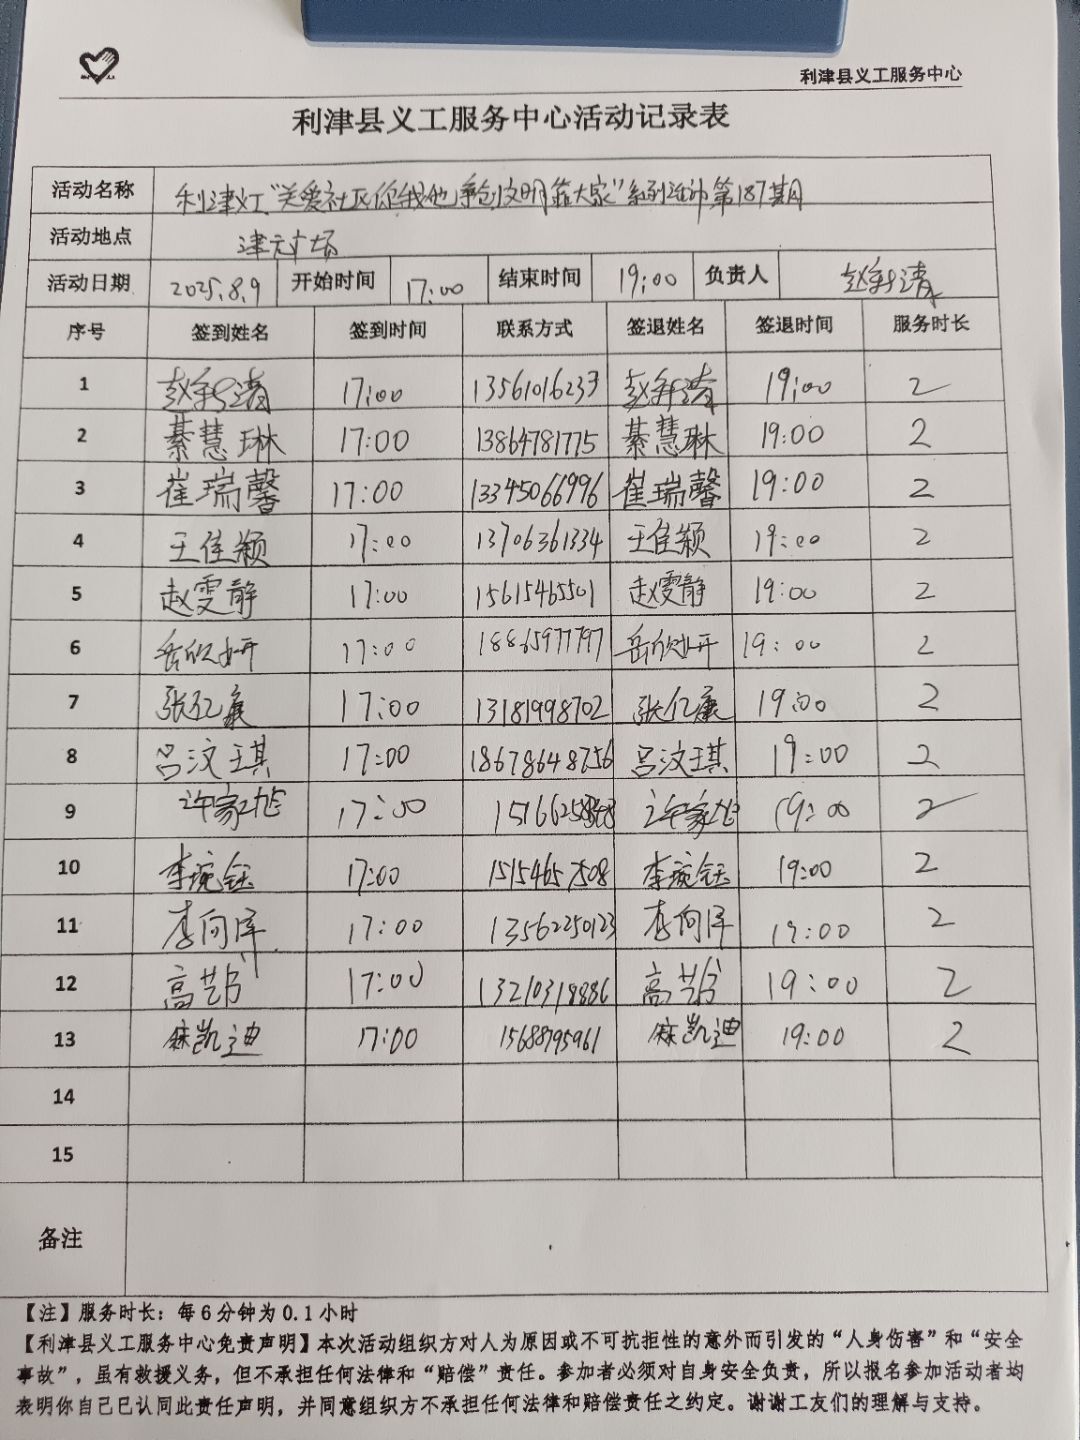 利津县义工服务中心
利津县义工服务中心活动记录表
活动名称 利津义工"关爱社区你我他 争创文明靠大家"系列活动第187期
活动地点 津元广场
活动日期 2025.8.9 开始时间 17:00 结束时间 19:00 负责人 赵新清
序号 签到姓名 签到时间 联系方式 签退姓名 签退时间 服务时长
1 赵新清 17:00 13561016233 赵新清 19:00 2
2 綦慧琳 17:00 13864781775 綦慧琳 19:00 2
3 崔瑞馨 17:00 13345066996 崔瑞馨 19:00 2
4 王佳颖 17:00 13706361334 王佳颖 19:00 2
5 赵雯静 17:00 15615465501 赵雯静 19:00 2
6 岳欣妍 17:00 18865977797 岳欣妍 19:00 2
7 张仁康 17:00 13181998702 张仁康 19:00 2
8 吕汶琪 17:00 18678648756 吕汶琪 19:00 2
9 许家旭 17:00 许家旭 19:00 2
10 李琬钰 17:00 15154657508 李琬钰 19:00 2
11 李向泽 17:00 13562250123 李向泽 19:00 2
12 高艺 17:00 13210318886 高艺 19:00 2
13 麻凯迪 17:00 15688795961 麻凯迪 19:00 2
14
15
备注
【注】服务时长：每6分钟为0.1小时
【利津县义工服务中心免责声明】本次活动组织方对人为原因或不可抗拒性的意外而引发的“人身伤害”和“安全
事故”，虽有救援义务，但不承担任何法律和“赔偿”责任。参加者必须对自身安全负责，所以报名参加活动者均
表明你自己已认同此责任声明，并同意组织方不承担任何法律和赔偿责任之约定。谢谢工友们的理解与支持。